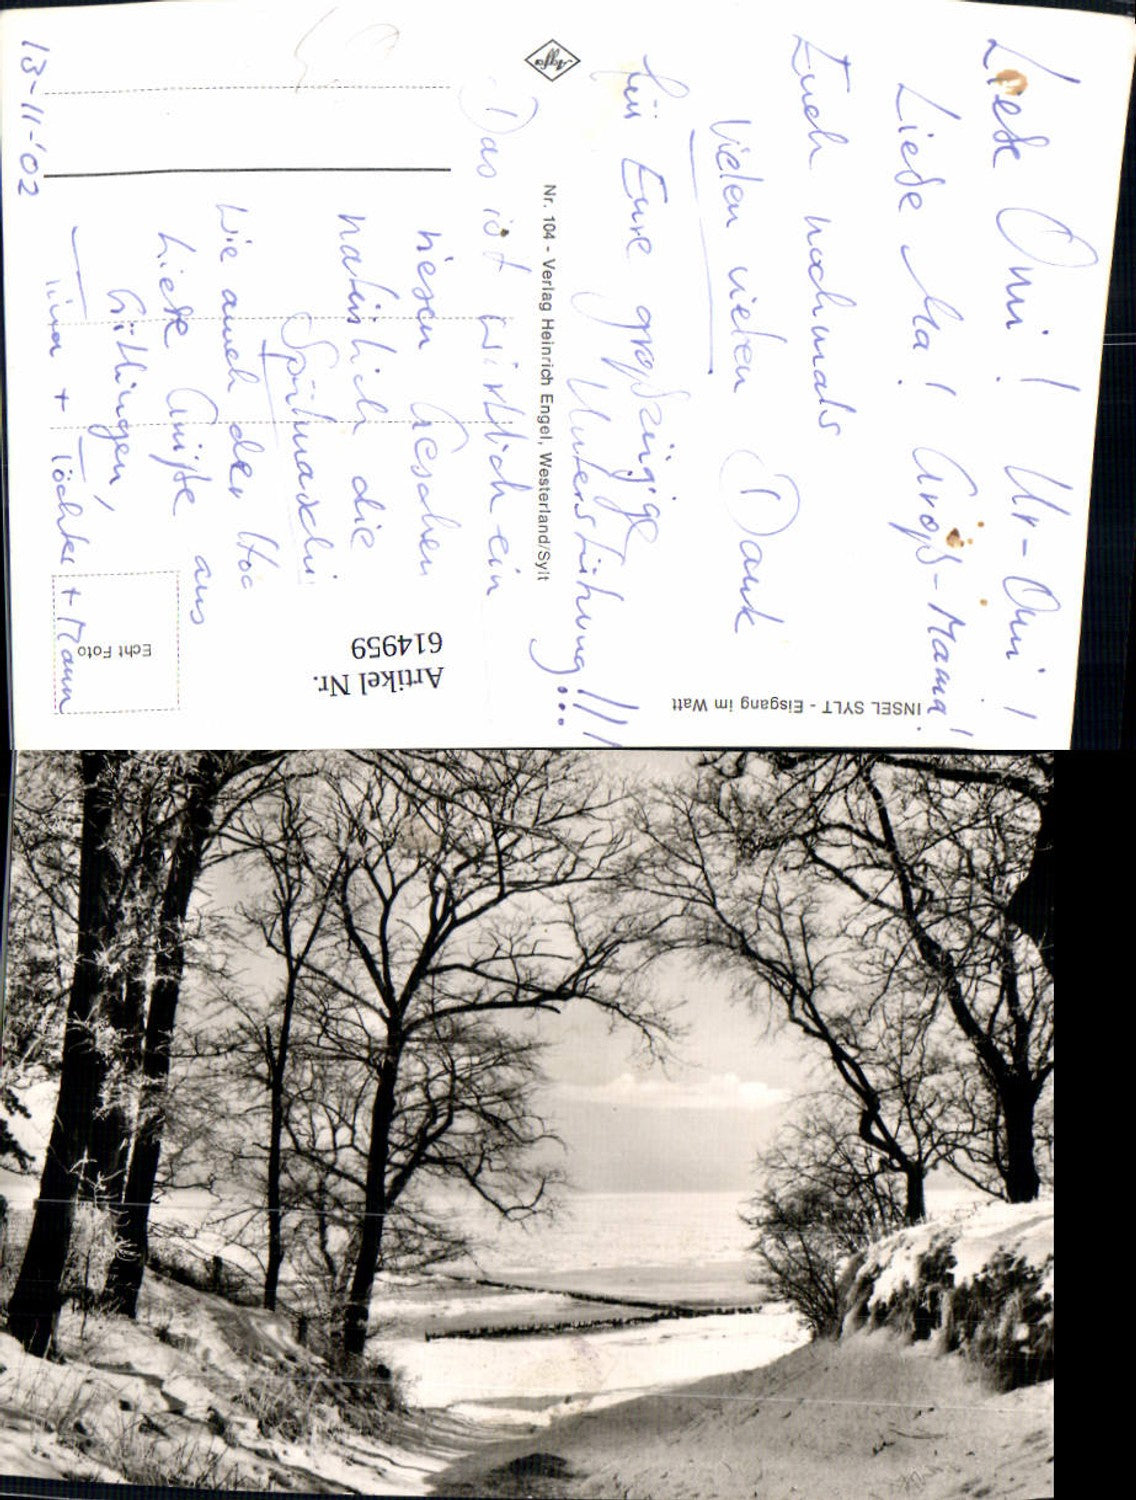 Liebe Omi! Ur-Omi!
Liebe Ma! Groß-Mama!
Euch nochmals
Vielen vielen Dank
für Eure großzügige
Unterstützung!!!
Das ist wirklich ein
riesen Geschen
natürlich die
Spülmaschi
Wie auch der Hoc
Liebe Grüße aus
Göttingen,
+ Töchter + Mann
13-11-'02
Agfa
Nr. 104 - Verlag Heinrich Engel, Westerland/Sylt
INSEL SYLT - Eisgang im Watt
Artikel Nr.
614959
Echt Foto